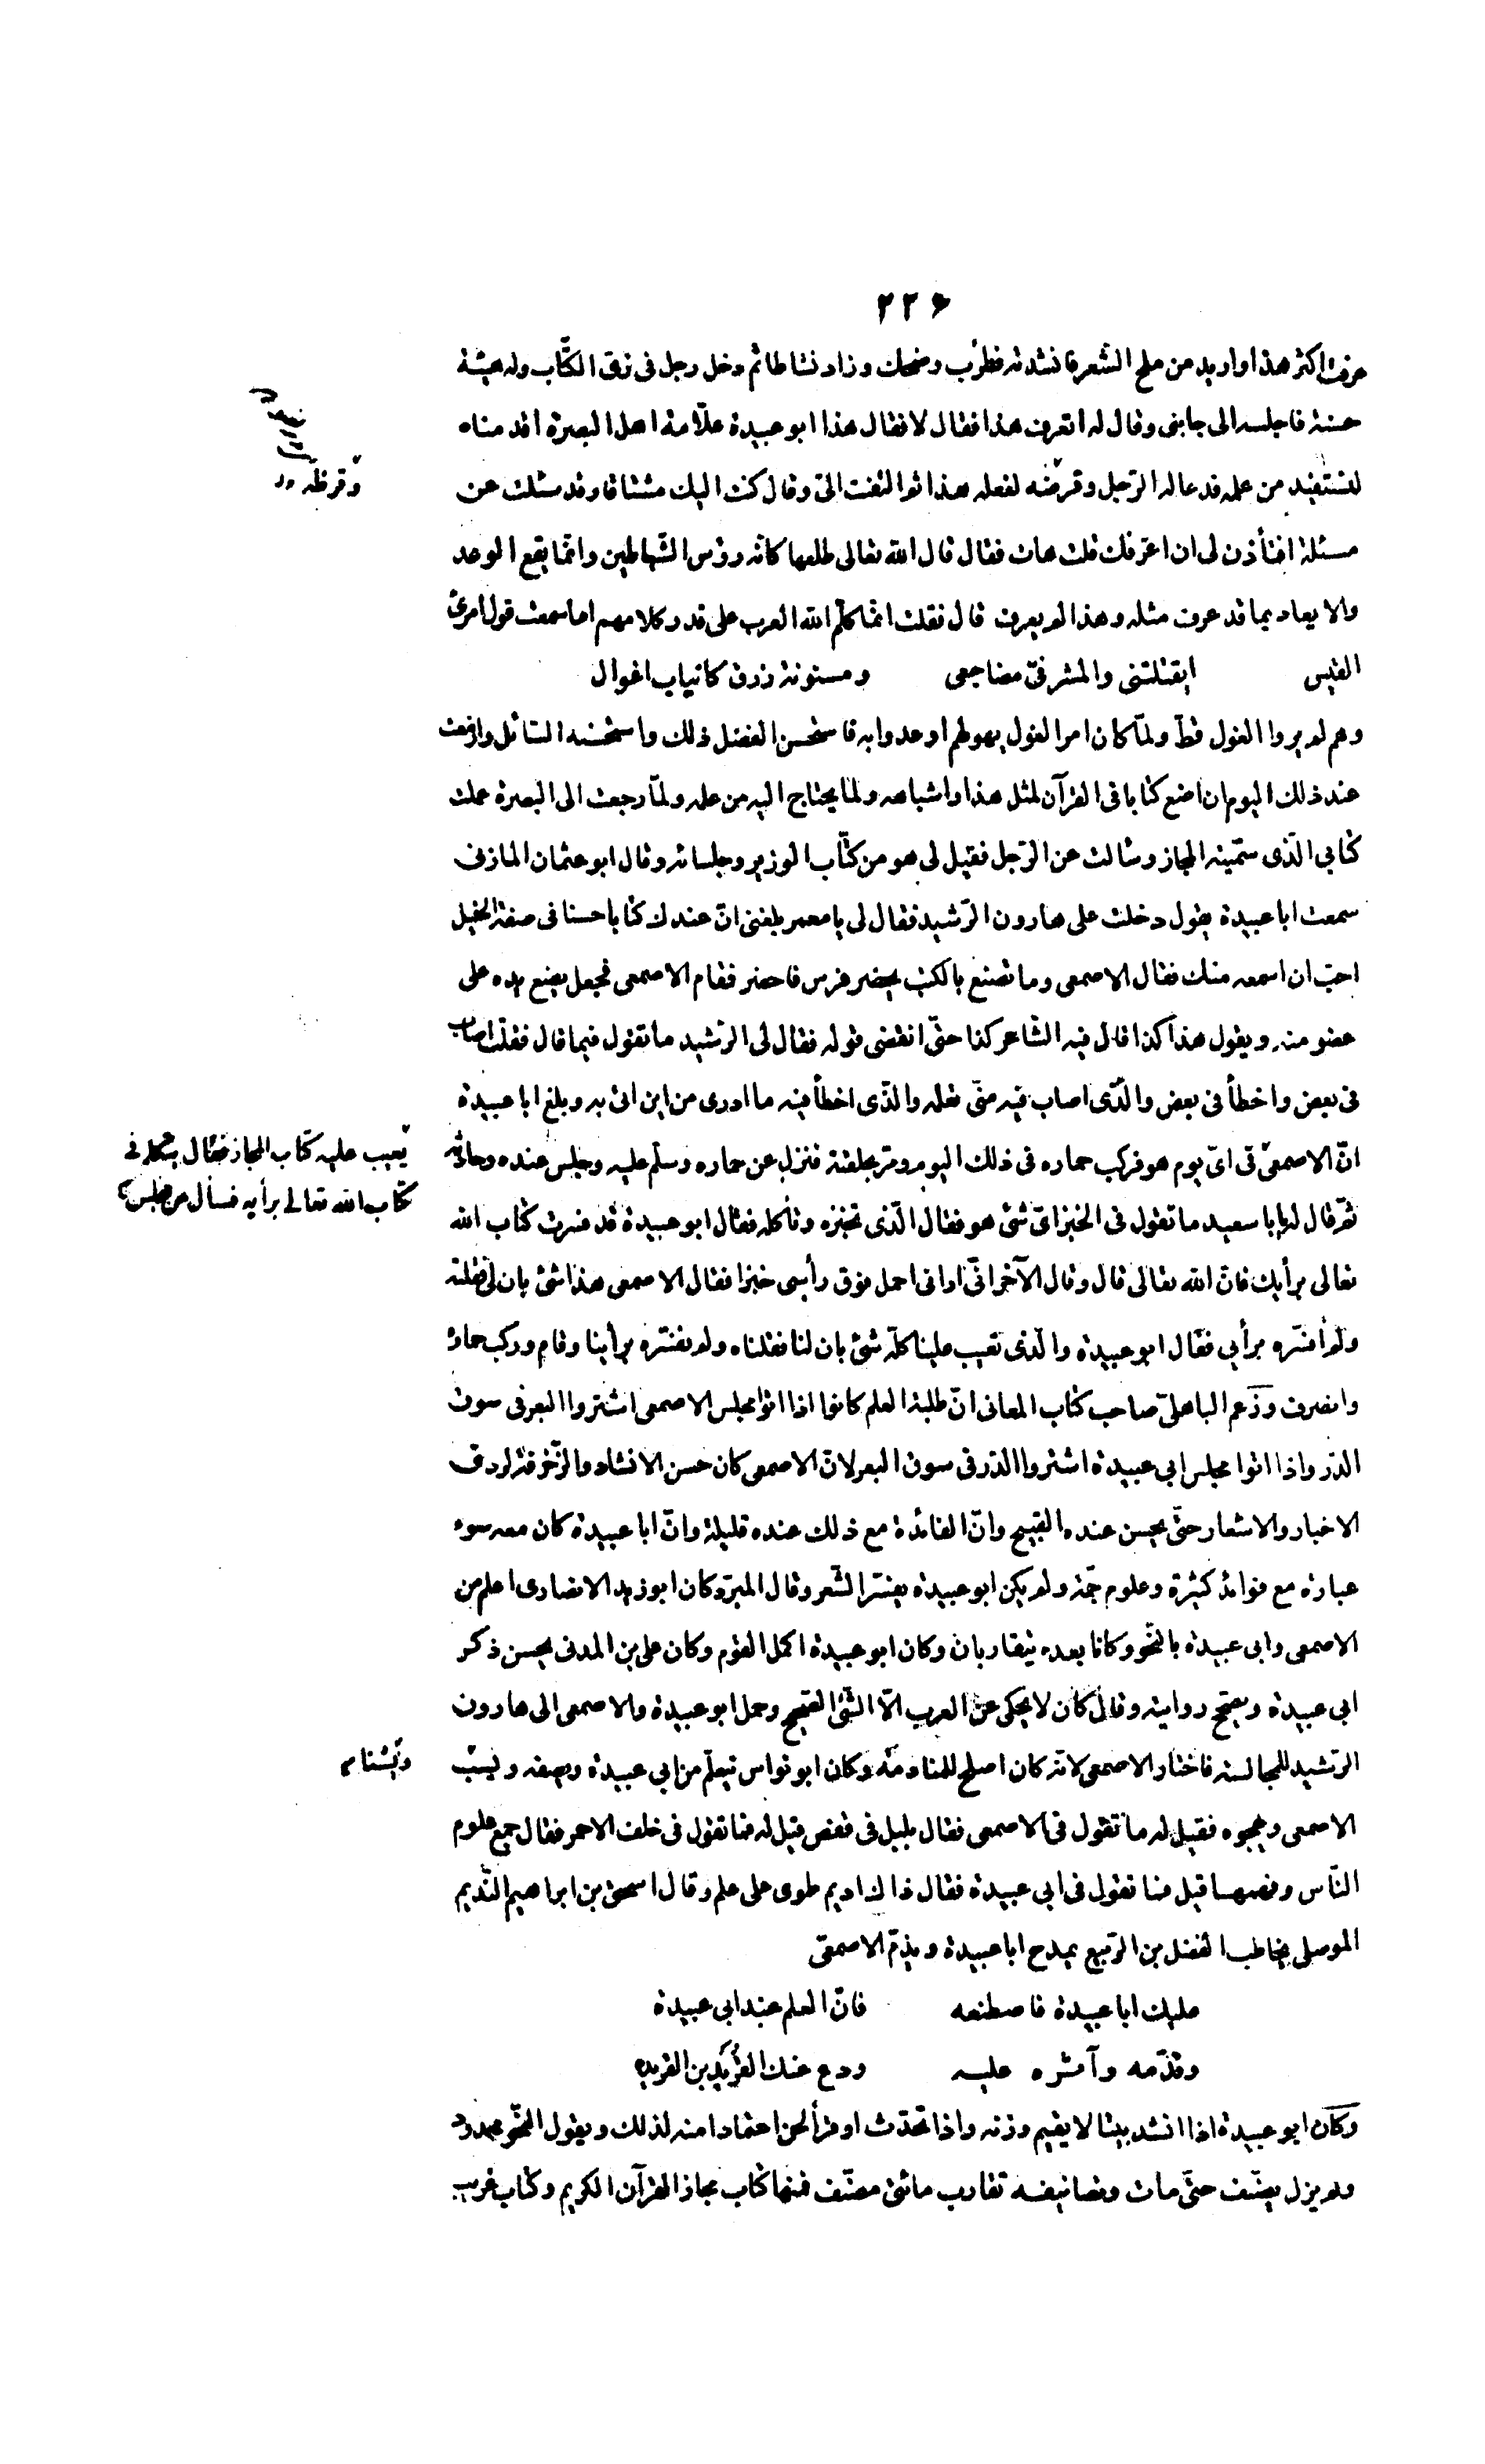 ٢٢۶
عرفت اكثر هذا و اريد من ملح الشّعر فانشدته فطرب وضحك وزاد نشاطا ثم دخل رجل فى زىّ الكتّاب وله هيئة
حسنة فاجلسه الى جانبى وقال له اتعرف هذا فقال لا فقال هذا ابو عبيدة علّامة اهل البصرة اقدمناه
لنستفيد من علمه فدعا له الرّجل وقرضه لفعله هذا ثم التفت الىّ وقال كنت اليك مشتاقا وقد سئلت عن
وقرظه
مسئلة افتأذن لى ان اعرفك قلت هات فقال قال الله تعالى طلعها كانّه رؤس الشّياطين وانّما يقع الوعد
والايعاد بما قد عرف مثله وهذا لم يعرف قال فقلت انّما كلّم الله العرب على قدر كلامهم اما سمعت قول امرئ
القيس ايقتلنى والمشرفىّ مضاجعى ومسنونة زرق كانياب اغوال
وهم لم يروا الغول قطّ ولمّا كان امر الغول يهولهم اوعدوا به فاستحسن الفضل ذلك واستحسنه السّائل وازمعت
عند ذلك اليوم ان اضع كتابا فى القرآن لمثل هذا واشباهه ولما يحتاج اليه من علمه ولمّا رجعت الى البصرة عملت
كتابي الّذى سمّيته المجاز وسالت عن الرّجل فقيل لى هو من كتّاب الوزير وجلسائه وقال ابو عثمان المازنى
سمعت ابا عبيدة يقول دخلت على هارون الرّشيد فقال لى يا معمر بلغنى انّ عندك كتابا حسنا فى صفة الخيل
احبّ ان اسمعه منك فقال الاصمعى وما تصنع بالكتب يحضر فرس فاحضر فقام الاصمعى فجعل يضع يده على
عضو منه ويقول هذا كذا قال فيه الشّاعر كذا حتّى انقضى قوله فقال لى الرّشيد ما تقول فيما قال فقلت اصاب
فى بعض واخطأ فى بعض والّذى اصاب فيه منّى تعلمه والّذى اخطأ فيه ما ادرى من اين اتى به وبلغ ابا عبيدة
انّ الاصمعىّ فى اىّ يوم هو فركب حماره فى ذلك اليوم ومرّ بحلقته فنزل عن حماره وسلّم عليه وجلس عنده وحادثه
يعيب عليه كتاب المجاز فقال يتكلم فى
كتاب الله تعالى برأيه فسأل عن مجلس
ثمّ قال له يا ابا سعيد ما تقول فى الخبز اىّ شئ هو فقال الّذى تخبزه وتأكله فقال ابو عبيدة قد فسّرت كتاب الله
تعالى برأيك فانّ الله تعالى قال وقال الآخر انّى ارانى احمل فوق رأسى خبزا فقال الاصمعى هذا شئ بان لى فقلته
ولم أفسّره برأيي فقال ابو عبيدة والّذى تعيب علينا كلّه شئ بان لنا فقلناه ولم نفسّره برأينا وقام وركب حماره
وانصرف وزعم الباهلىّ صاحب كتاب المعانى انّ طلبة العلم كانوا اذا اتوا مجلس الاصمعى اشتروا البعر فى سوق
الدّر واذا اتوا مجلس ابى عبيدة اشتروا الدّر فى سوق البعر لانّ الاصمعى كان حسن الانشاد والزّخرفة لردى
الاخبار والاشعار حتّى يحسن عنده القبيح وانّ الفائدة مع ذلك عنده قليلة وانّ ابا عبيدة كان معه سوء
عبارة مع فوائد كثيرة وعلوم جمّة ولم يكن ابو عبيدة يفسّر الشّعر وقال المبرّد كان ابو زيد الانصارى اعلم من
الاصمعى وابى عبيدة بالنّحو وكانا بعده يتقاربان وكان ابو عبيدة اكمل القوم وكان على بن المدنى يحسن ذكر
ابى عبيدة ويصحّح روايته وقال كان لا يحكى عن العرب الّا الشّئ الصّحيح وحمل ابو عبيدة والاصمعى الى هارون
الرّشيد للمجالسة فاختار الاصمعى لانّه كان اصلح للمنادمة وكان ابو نواس يتعلّم من ابى عبيدة ويصفه ويسبّ
ويشنأ
الاصمعى ويهجوه فقيل له ما تقول فى الاصمعى فقال بلبل فى قفص قيل له فما تقول فى خلف الاحمر فقال جمع علوم
النّاس وفهمها قيل فما تقول فى ابى عبيدة فقال ذاك اديم طوى على علم وقال اسحق بن ابراهيم النّديم
الموصلى يخاطب الفضل بن الرّبيع يمدح ابا عبيدة ويذمّ الاصمعىّ
عليك ابا عبيدة فاصطنعه فانّ العلم عند ابى عبيدة
وقدّمه وآثره عليه ودع عنك القريد بن القريده
وكان ابو عبيدة اذا انشد بيتا لا يقيم وزنه واذا تحدّث او قرأ لحن اعتمادا منه لذلك ويقول النّحو محدود
ولم يزل يصنّف حتّى مات وتصانيفه تقارب مائتى مصنّف فمنها كتاب مجاز القرآن الكريم وكتاب غريب